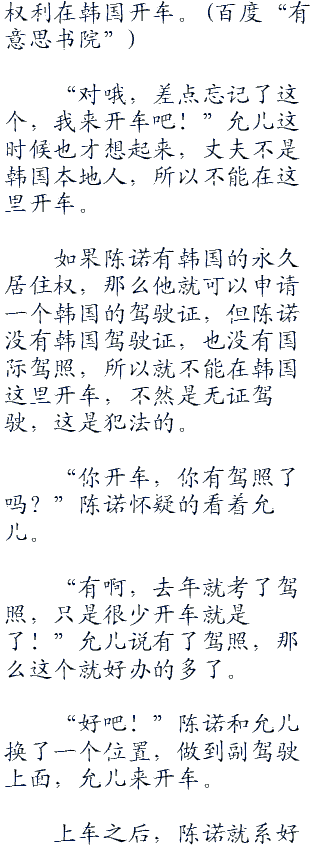 权利在韩国开车。(百度“有
意思书院”)
“对哦，差点忘记了这
个，我来开车吧！”允儿这
时候也才想起来，丈夫不是
韩国本地人，所以不能在这
里开车。
如果陈诺有韩国的永久
居住权，那么他就可以申请
一个韩国的驾驶证，但陈诺
没有韩国驾驶证，也没有国
际驾照，所以就不能在韩国
这里开车，不然是无证驾
驶，这是犯法的。
“你开车，你有驾照了
吗？”陈诺怀疑的看着允
儿。
“有啊，去年就考了驾
照，只是很少开车就是
了！”允儿说有了驾照，那
么这个就好办的多了。
“好吧！”陈诺和允儿
换了一个位置，做到副驾驶
上面，允儿来开车。
上车之后，陈诺就系好